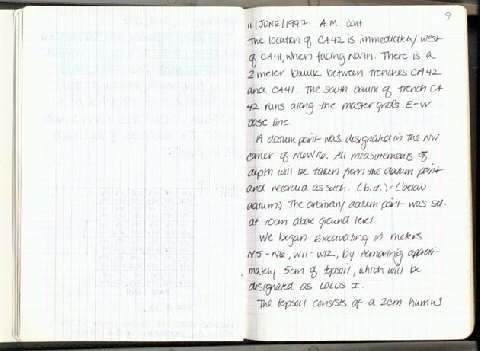 9
11/JUNE/1997 A.M. cont
The location of CA42 is immediately west
of CA41, when facing North. There is a
2 meter baulk between trenches CA42
and CA41. The south baulk of trench CA
42 runs along the master grid's E-W
base line.
A datum point was designated in the NW
corner of . All measurements of
depth will be taken from the datum point
and referred as such. (b.d.) = (below
datum) The arbitrary datum point was set
at above ground level.
We began excavating in meters
N5-N6, W11-W12, by removing approxi-
mately 5cm of topsoil, which will be
designated as Locus I.
The topsoil consists of a 2cm humus